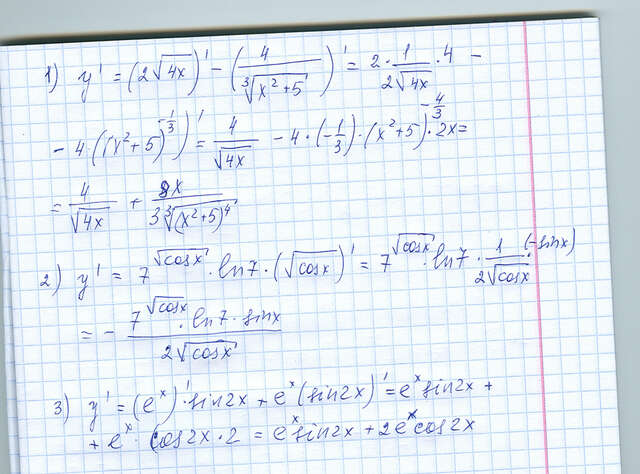 1) y' = (2√(4x))' - (4/∛(x²+5))' = 2·1/(2√(4x))·4 -
- 4·((x²+5)^(-1/3))' = 4/√(4x) - 4·(-1/3)·(x²+5)^(-4/3)·2x =
= 4/√(4x) + 8x/(3∛((x²+5)⁴))
2) y' = 7^(√cosx)·ln7·(√cosx)' = 7^(√cosx)·ln7·1/(2√cosx)·(-sinx)
= - (7^(√cosx)·ln7·sinx)/(2√cosx)
3) y' = (eˣ)'·sin2x + eˣ(sin2x)' = eˣsin2x +
+ eˣ·cos2x·2 = eˣsin2x + 2eˣcos2x